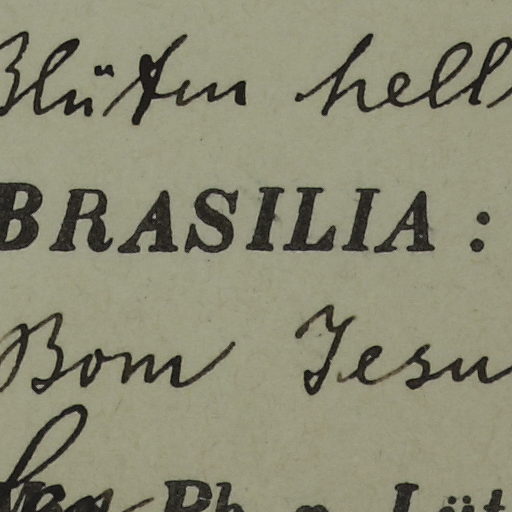 Blüten hell
BRASILIA:
Bom Jesu
Ph. v. Lüt